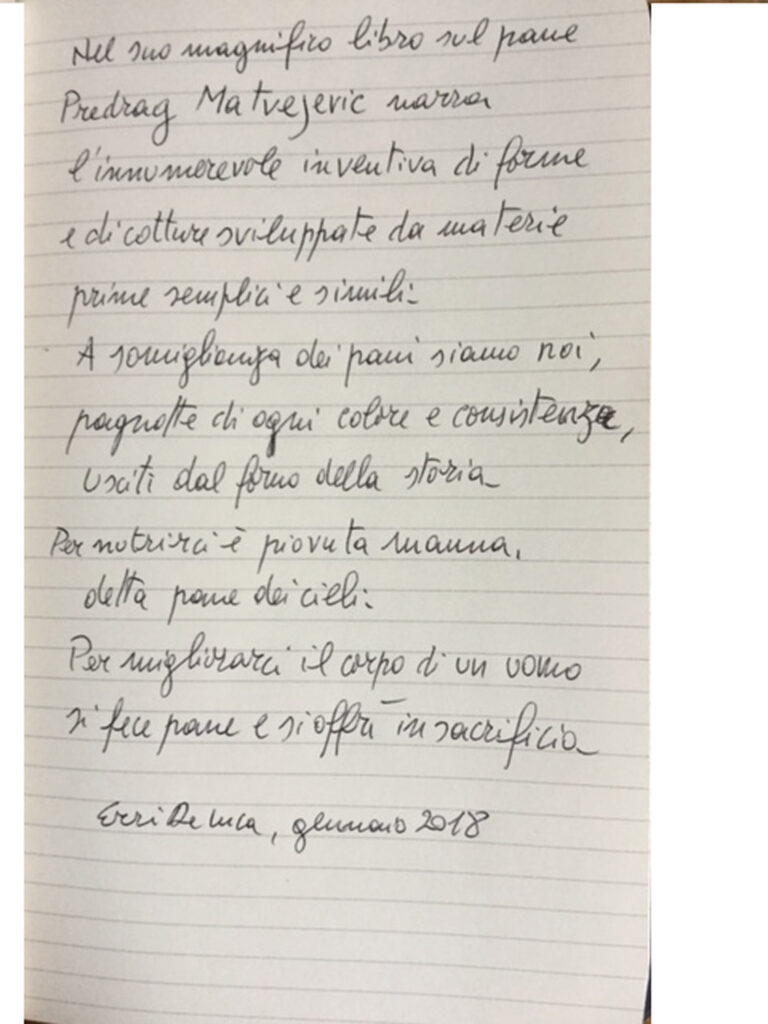 Nel suo magnifico libro sul pane
Predrag Matvejevic narra
l'innumerevole inventiva di forme
e di cotture sviluppate da materie
prime semplici e simili.
A somiglianza dei pani siamo noi,
pagnotte di ogni colore e consistenza,
usciti dal forno della storia.
Per nutrirci è piovuta manna,
detta pane dei cieli.
Per migliorarci il corpo di un uomo
si fece pane e si offrì in sacrificio.
Erri De Luca, gennaio 2018